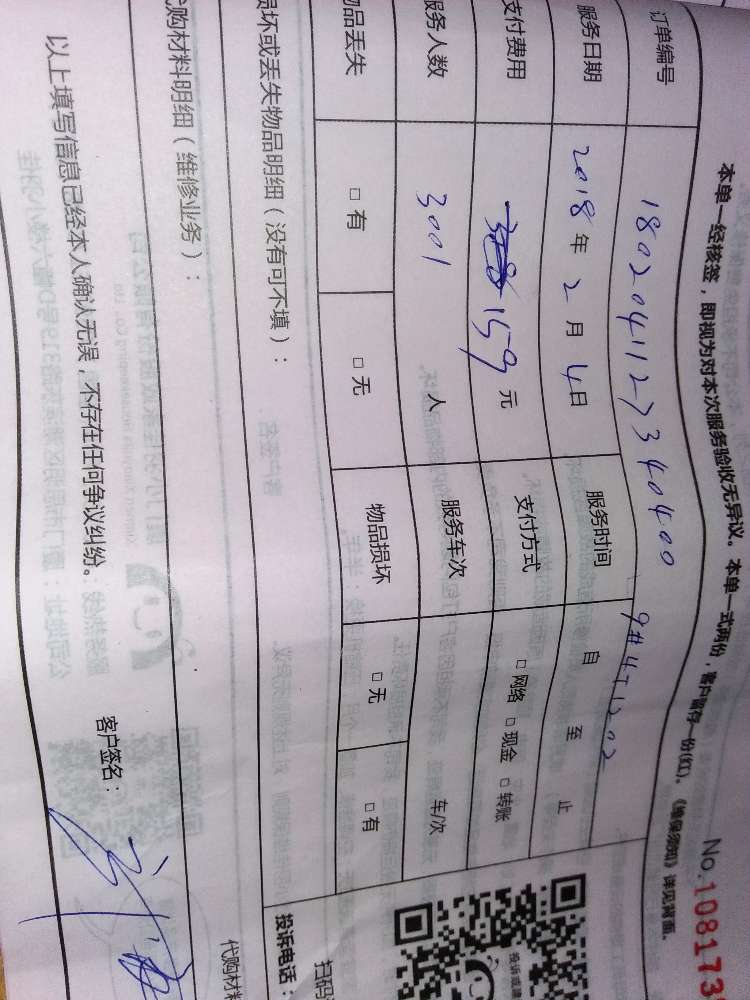 本单一经核签，即视为对本次服务验收无异议。本单一式两份，客户留存一份(红)。《维保须知》详见背面。
No.108173
订单编号 180204112734040 0 9#4T1202
服务日期 2018年2月4日 服务时间 自 至 止
支付费用 159元 支付方式 □网络 □现金 □转账
服务人数 3001 人 服务车次 车/次
物品丢失 □有 □无 物品损坏 □无 □有
损坏或丢失物品明细（没有可不填）：
代购材料明细（维修业务）：
代购材料
投诉电话：
扫码
投诉或建
以上填写信息已经本人确认无误，不存在任何争议纠纷。
客户签名：